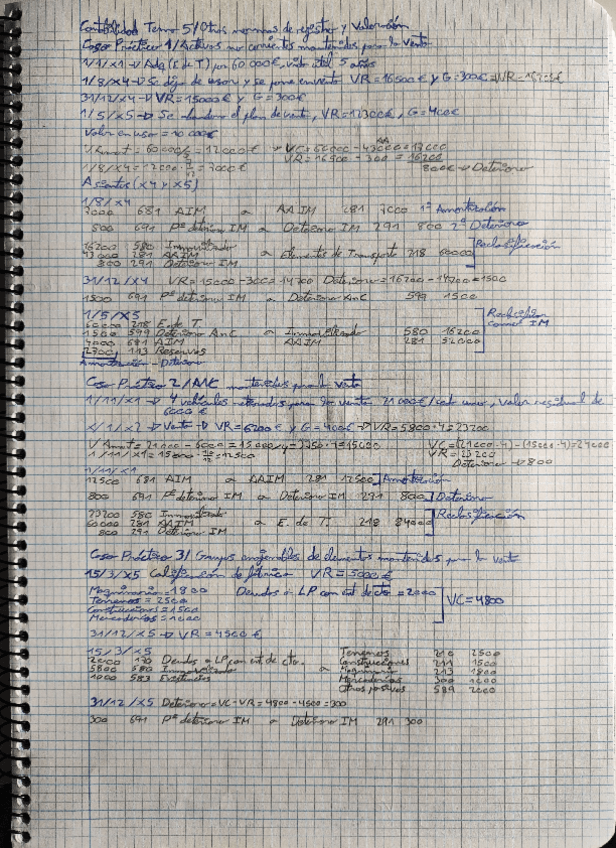 Contabilidad Tema 5/Otras normas de registro y valoración
Caso Práctico 1/Activos no corrientes mantenidos para la venta
1/1/X1 → Adq (E de T) por 60 000€, vida útil 5 años
1/8/X4 → Se deja de usar y se pone en venta VR = 16500€ y G = 300€
31/12/X4 → VR = 15000€ y G = 300€
1/5/X5 → Se abandona el plan de venta, VR = 12300€, G = 400€
Valor en uso = 10 000€
VC = 60000 - 43000 =
VR = 16500 - 300 = 16200
800€ → Deterioro
Asientos (X4 y X5)
1/8/X4
7000 681 AIM a AAIM 281 7000 1º Amortización
800 691 Pº deterioro IM a Deterioro IM 291 800 2º Deterioro
16200 580 Inmovilizado
43000 281 AAIM a Elementos de Transporte 218 60000 Reclasificación
800 291 Deterioro IM
31/12/X4 VR = 15000 - 300 = 14700 Deterioro = 16200 - 14700 = 1500
1500 691 Pº deterioro IM a Deterioro AnC 599 1500
1/5/X5
60000 218 E. de T.
1500 599 Deterioro AnC a Inmovilizado 580 16200
4000 681 AIM AAIM 281
113 Reservas
Amortización - Deterioro
Caso Práctico 2/ANC mantenidos para la venta
1/11/X1 → 4 vehículos retirados para la venta 21000€/cada uno, valor residual de
6000€
Venta → VR = 6200€ y G = 400€ → VR = 5800·4 = 23200
VC = (21000·4) - (15000·4) = 24000
VR = 23200
Deterioro → 800
1/11/X1
12500 681 AIM a AAIM 281 12500 Amortización
800 691 Pº deterioro IM a Deterioro IM 291 800 Deterioro
23200 580 Inmovilizado
60000 281 AAIM a E. de T. 218 84000 Reclasificación
800 291 Deterioro IM
Caso Práctico 3/ Grupos enajenables de elementos mantenidos para la venta
15/3/X5 Calificación de fábrica VR = 5000€
Maquinaria = 1800 Deudas a LP con ent de cto = 2000
Terrenos = 2500
Construcciones = 1500 VC = 4800
Mercaderías = 1000
31/12/X5 → VR = 4500€
15/3/X5 Terrenos 210 2500
2000 170 Deudas a LP con ent. de cto. Construcciones 211 1500
5800 580 Inmovilizado a Maquinaria 213 1800
1000 583 Existencias Mercaderías 300 1000
Otros pasivos 589 2000
31/12/X5 Deterioro = VC - VR = 4800 - 4500 = 300
300 691 Pº deterioro IM a Deterioro IM 291 300